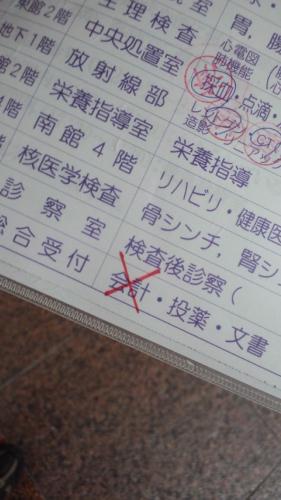 東館2階 生理検査 心電図
肺機能
地下1階 中央処置室 採血・点滴・
館2階 放射線部 レントゲン・CT
造影
1階 栄養指導室 栄養指導
南館4階 リハビリ・健康医
核医学検査 骨シンチ,腎シ
診察室 検査後診察(
総合受付 会計・投薬・文書